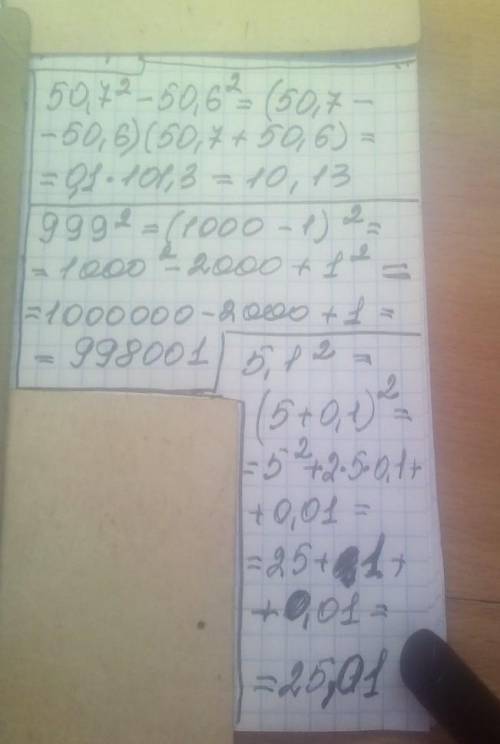 50,7² - 50,6² = (50,7 -
- 50,6)(50,7 + 50,6) =
= 0,1 · 101,3 = 10,13
999² = (1000 - 1)² =
= 1000² - 2000 + 1² =
= 1000000 - 2000 + 1 =
= 998001
5,1² =
(5 + 0,1)² =
= 5² + 2·5·0,1 +
+ 0,01 =
= 25 + 1 +
+ 0,01 =
= 25,01